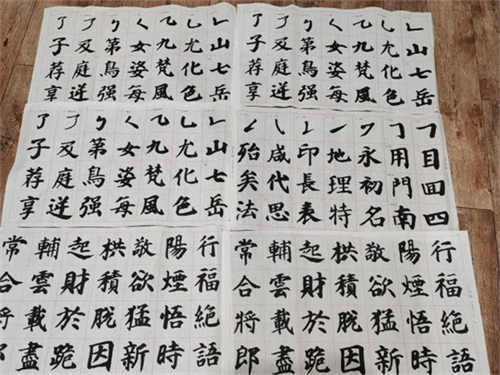 山七岳
尤化色
九梵風
女姿每
第鳥强
及庭送
子荐享
山七岳
尤化色
九梵風
女姿每
第鳥强
及庭送
子荐享
目回四
用門南
永初名
地理特
印長表
咸代思
殆矣法
山七岳
尤化色
九梵風
女姿每
第鳥强
及庭送
子荐享
行福絶語
陽煙悟時
敬欲猛新
栱積脱因
起財於跪
輔雲載盡
常合將郎
行福絶語
陽煙悟時
敬欲猛新
栱積脱因
起財於跪
輔雲載盡
常合將郎